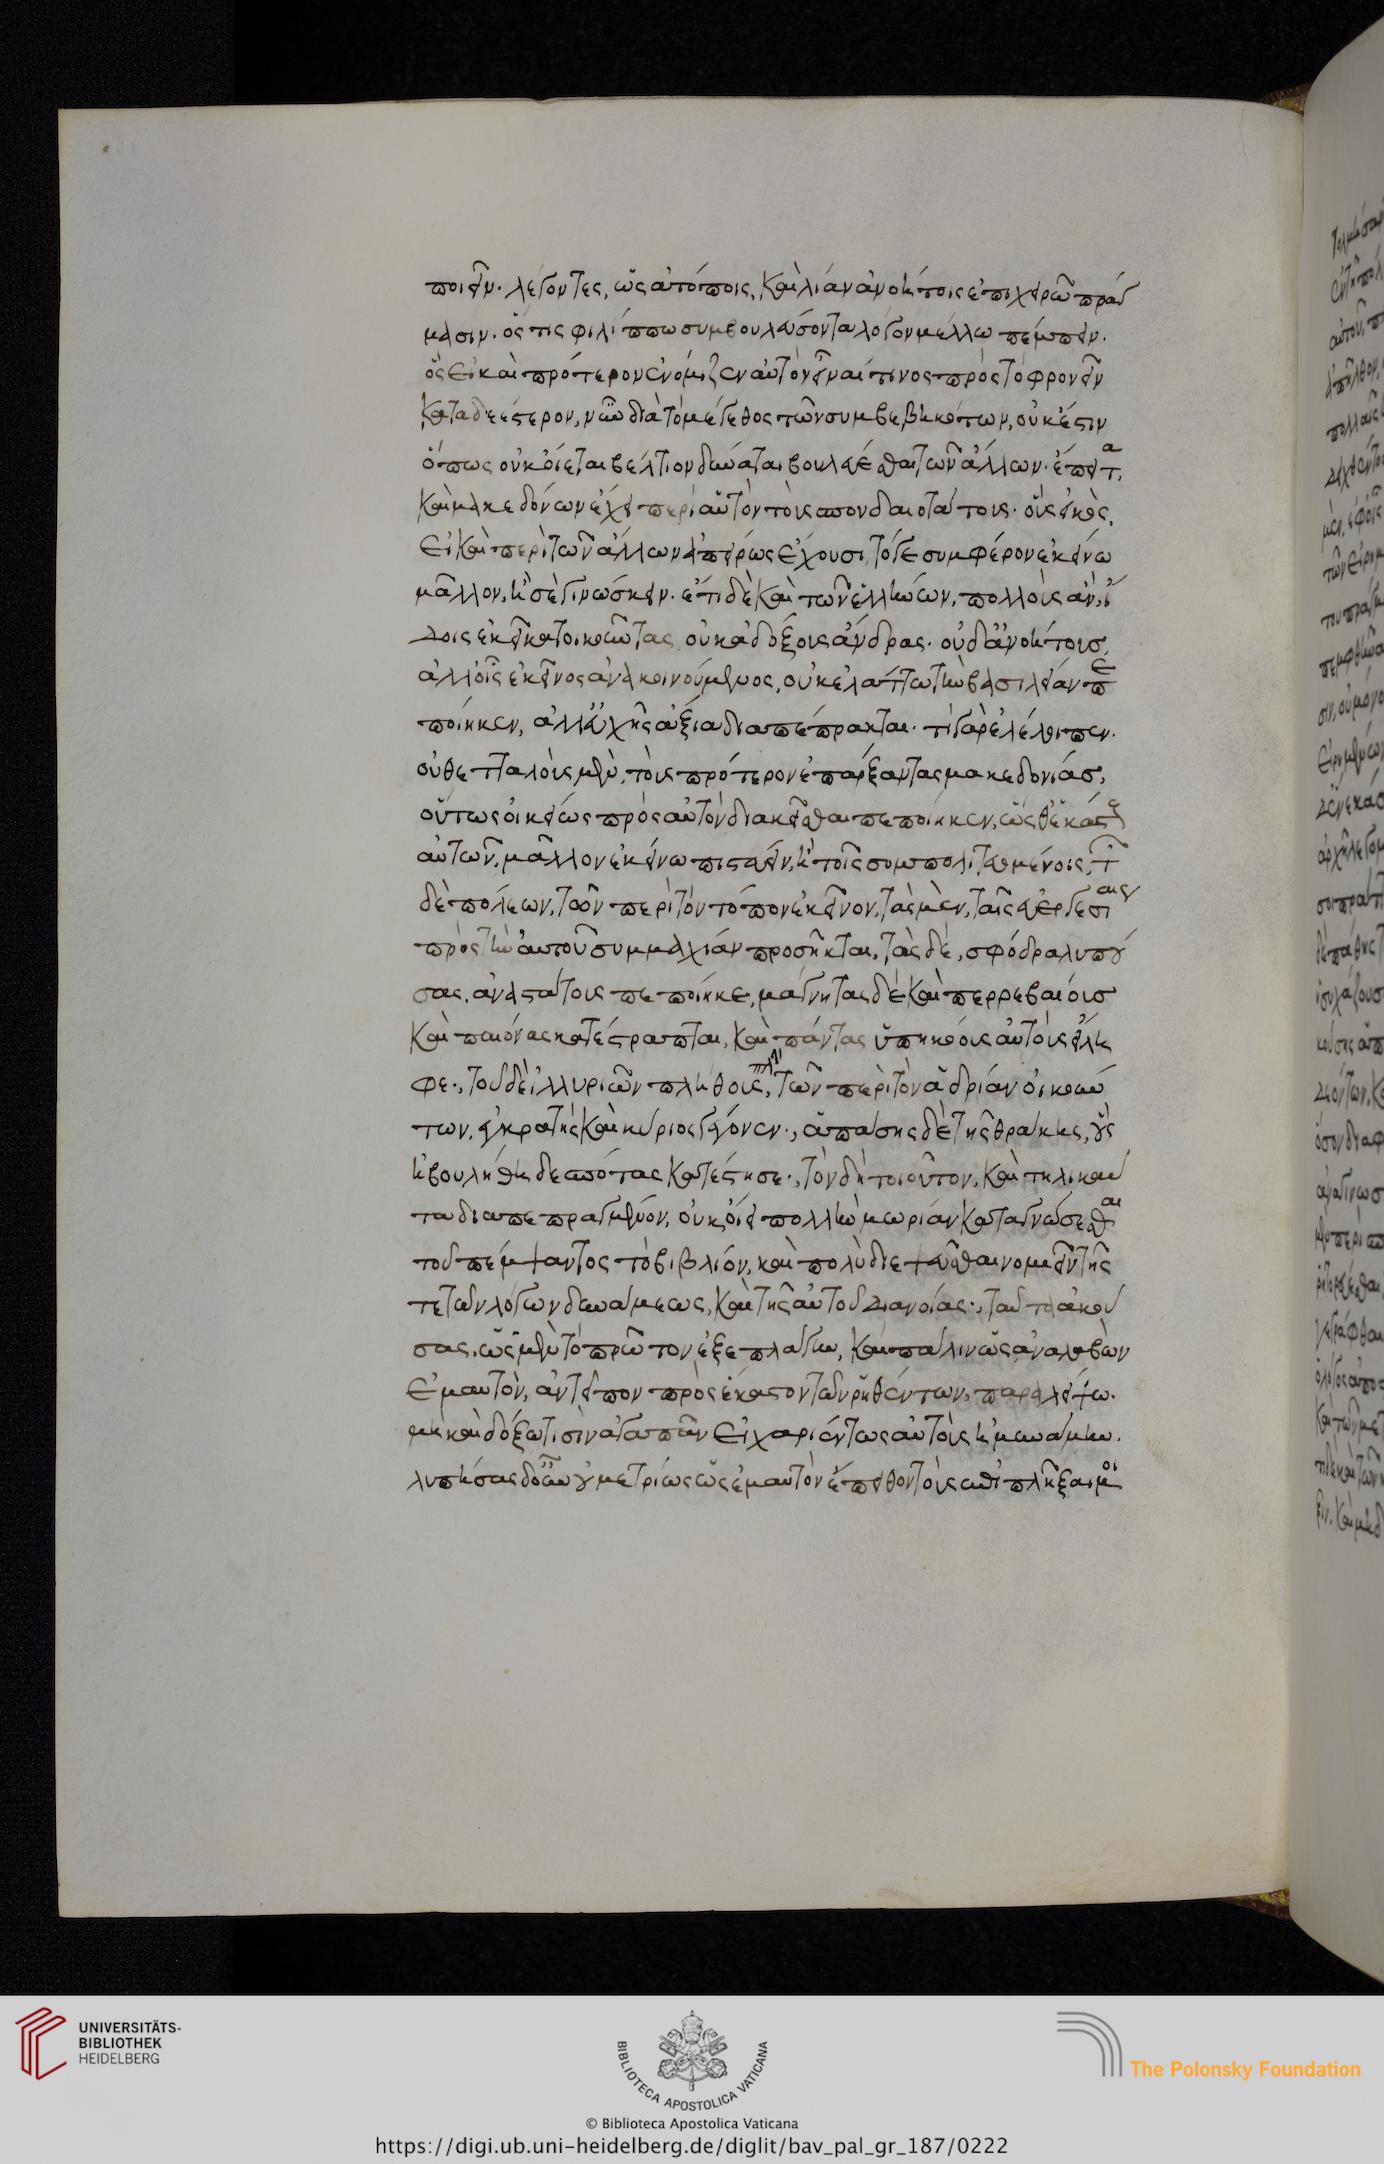 ποιεῖν· λέγοντες, ὡς ἀτόποις, καὶ λίαν ἀνοήτοις ἐπιχειρῶ πράγ
μασιν· ὅς τις φιλίππω συμβουλεύσοντα λόγον μέλλω πέμπειν·
ὃς εἰ καὶ πρότερον ἐνόμιζεν αὑτὸν εἶναί τινος πρὸς τὸ φρονεῖν
καταδεέστερον, νῦν διὰ τὸ μέγεθος τῶν συμβεβηκότων, οὐκ ἔστιν
ὅπως οὐκ οἴεται βέλτιον δύναται βουλεύεσθαι τῶν ἄλλων· ἔπειτα
καὶ μακεδόνων ἔχει περὶ αὑτὸν τοὺς σπουδαιοτάτους· οὓς εἰκὸς,
εἰ καὶ περὶ τῶν ἄλλων ἀπείρως ἔχουσι, τό γε συμφέρον ἐκείνω
μᾶλλον, ἢ σὲ γινώσκειν· ἔτι δὲ καὶ τῶν ἑλλήνων, πολλοὺς ἂν, ἴ
δοις ἐκεῖ κατοικοῦντας οὐκ ἀδόξους ἄνδρας· οὐδ' ἀνοήτους,
ἀλλ' οἷς ἐκεῖνος ἀνακοινούμενος, οὐκ ἐλάττω τὴν βασιλείαν πε
ποίηκεν, ἀλλ' εὐχῆς ἄξια διαπέπρακται· τί γὰρ ἐλέλοιπεν·
οὐ θετταλοὺς μὲν, τοὺς πρότερον ἐπάρξαντας μακεδονίας,
οὕτως οἰκείως πρὸς αὑτὸν διακεῖσθαι πεποίηκεν, ὥσθ' ἕκαστον
αὐτῶν, μᾶλλον ἐκείνω πιστεύειν, ἢ τοῖς συμπολιτευομένοις, τῶν
δὲ πόλεων, τῶν περὶ τὸν τόπον ἐκεῖνον, τὰς μὲν, ταῖς εὐεργεσίαις
πρὸς τὴν αὑτοῦ συμμαχίαν προσῆκται, τὰς δὲ, σφόδρα λυπού
σας, ἀναστάτους πεποίηκε, μάγνητας δὲ καὶ περρεβαιούς
καὶ παιόνας κατέστραπται, καὶ πάντας ὑπηκόους αὐτοὺς εἴλη
φε·, τοῦ δὲ ἰλλυριῶν πλήθους, πλὴν τῶν περὶ τὸν ἀδρίαν οἰκούν
των, ἐγκρατὴς καὶ κύριος γέγονεν·, ἁπάσης δὲ τῆς θράκης, οὓς
ἠβουλήθη δεσπότας κατέστησε·, τὸν δὴ τοιοῦτον, καὶ τηλικαῦ
τα διαπεπραγμένον, οὐκ οἴει πολλὴν μωρίαν καταγνώσεσθαι
τοῦ πέμψαντος τὸ βιβλίον, καὶ πολὺ διεψεῦσθαι νομιεῖν τῆς
τε τῶν λόγων δυνάμεως, καὶ τῆς αὑτοῦ διανοίας·, ταῦτα ἀκού
σας, ὡς μὲν τὸ πρῶτον ἐξεπλάγην, καὶ πάλιν ὡς ἀναλαβὼν
ἐμαυτὸν, ἀντεῖπον πρὸς ἕκαστον τῶν ῥηθέντων, παραλείψω·
μὴ καὶ δόξω τισὶν ἀγαπᾶν εἰ χαριέντως αὐτοὺς ἠμυνάμην·
λυπήσας δ' οὖν μετρίως ὡς ἐμαυτὸν ἔπειθον τοὺς ἐπιπλῆξαί μοι